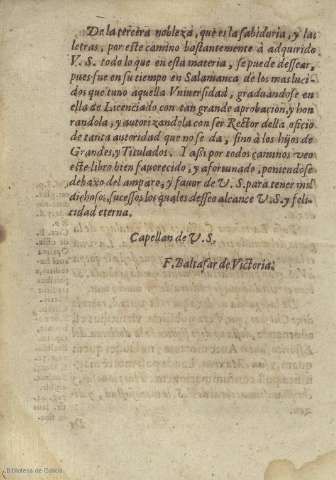 De la tercera nobleza, que es la sabiduria, y las
letras, por este camino bastantemente à adquirido
V. S. todo lo que en esta materia, se puede dessear,
pues fue en su tiempo en Salamanca de los mas luci-
dos que tuuo aquella Vniuersidad, graduandose en
ella de Licenciado con tan grande aprobacion, y hon
randola, y autorizandola con ser Rector della oficio
de tanta autoridad que no se da, sino à los hijos de
Grandes, y Titulados. I assi por todos caminos veo
este libro bien fauorecido, y afortunado, poniendose
debaxo del amparo, y fauor de V. S. para tener mil
dichosos sucessos los quales desseo alcance V. S. y feli-
cidad eterna.
Capellan de V. S.
F. Baltasar de Victoria.
Biblioteca de Galicia